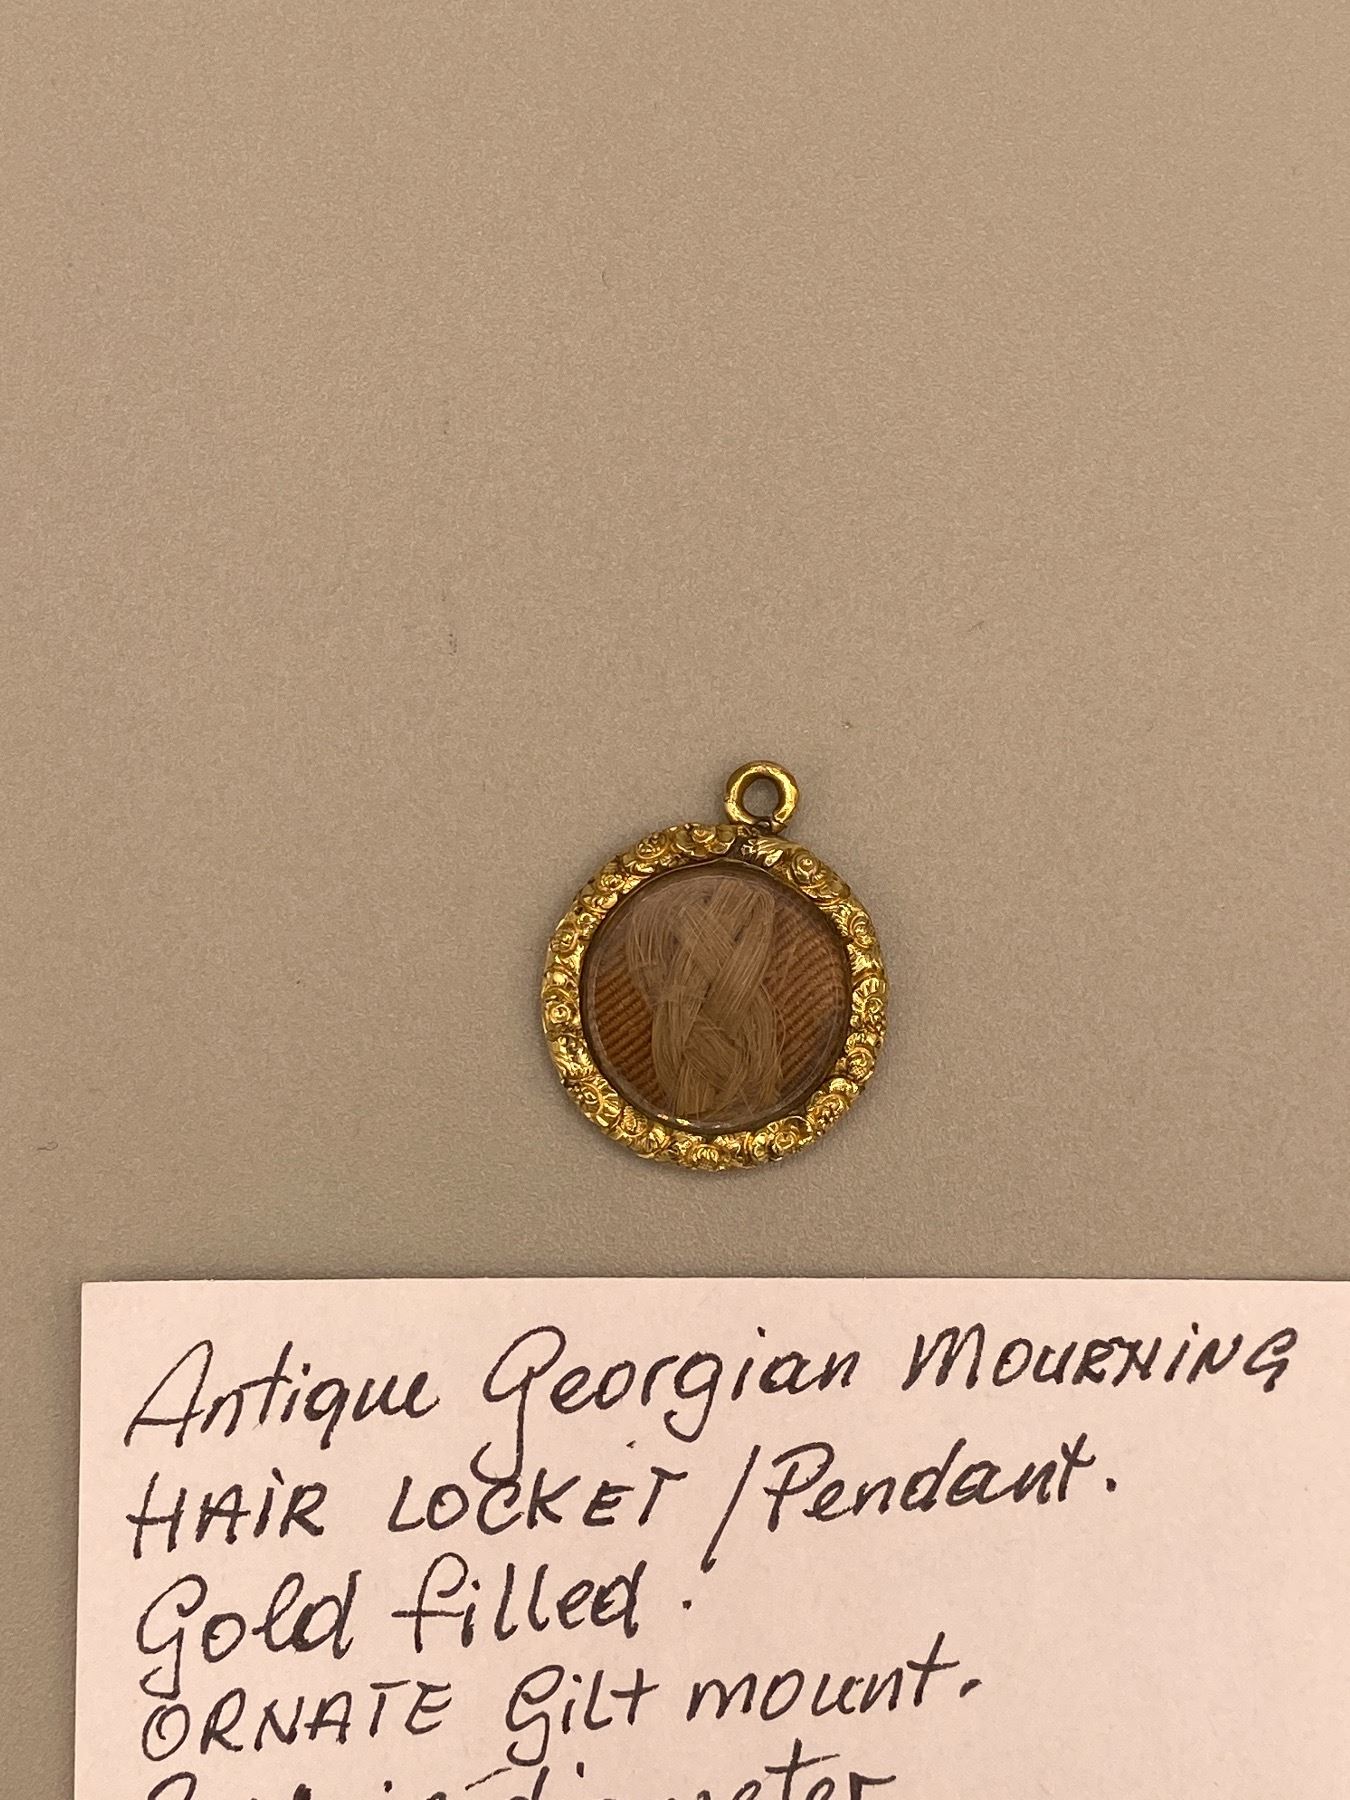 Antique Georgian MOURNiNG
HAiR LOCKET / Pendant.
Gold filled.
ORNATE Gilt mount.
diameter